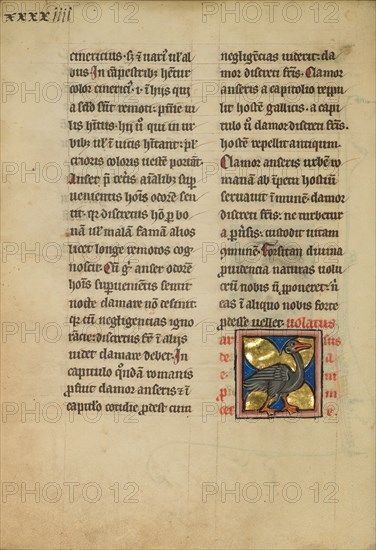 xxxxiiii
cinericius. s; ⁊ uari ul al
bus In campestrib; hetur
color cinericiꝰ. i. ⁊ hiis qui
a sedo sunt remoti. pnie ui
lis hitus. hii u qui in ur
bib; ul ⁊ uicis hitant. pl
crioris coloris ueste portat.
Anser p ceris aialib; sup
uenientus hois otore sen
tit. qr discretus ho p bo
na ul mala fama alios
licet longe remotos cog
noscit. Cu g anser otore
hois superuenietis sentit
nocte clamare no desinit.
qr cu negligencias igno
racie. discretus fr ⁊ aliis
uidet clamare debet. In
capitulo qnda romanis
pfuit clamor anseris ⁊ in
capitulo cotidie pdest cum
negligēcias uiderit. cla
mor discreti fris. Clamor
anseris a capitolio reppu
lit hoste gallicus. a capi
tulo u clamor discreti fris.
hoste repellit antiquum.
Clamor anseris urbe ro
mana ab ipetu hostiu
seruauit ⁊ imune. clamor
discreti fris. ne turbetur
a puersis. custodit uitam
comune. Forsitan diuina
prouidencia naturas uolu
crum nobis n pponeret. n
eas ⁊ aliquo nobis forte
pdesse uellet. uolatus